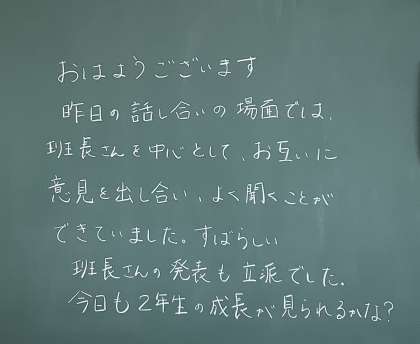 おはようございます
昨日の話し合いの場面では、
班長さんを中心として、お互いに
意見を出し合い、よく聞くことが
できていました。すばらしい
班長さんの発表も立派でした。
今日も2年生の成長が見られるかな?